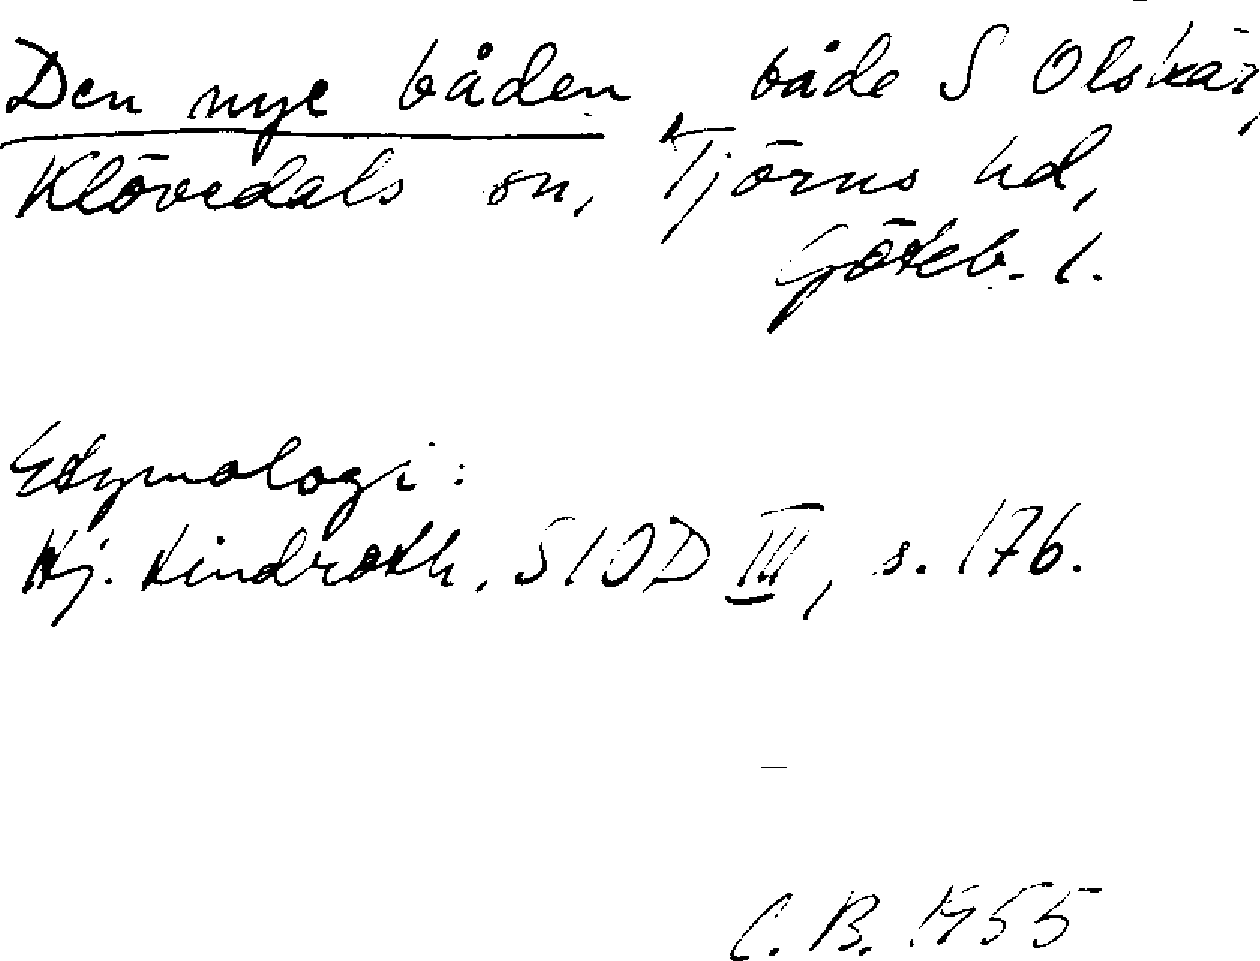 Den nye båden, både S Olskär,
Klövedals sn, Tjörns hd,
Göteb. l.
Etymologi:
Hj. Lindroth, SIOD III, s. 176.
C. B. 1955